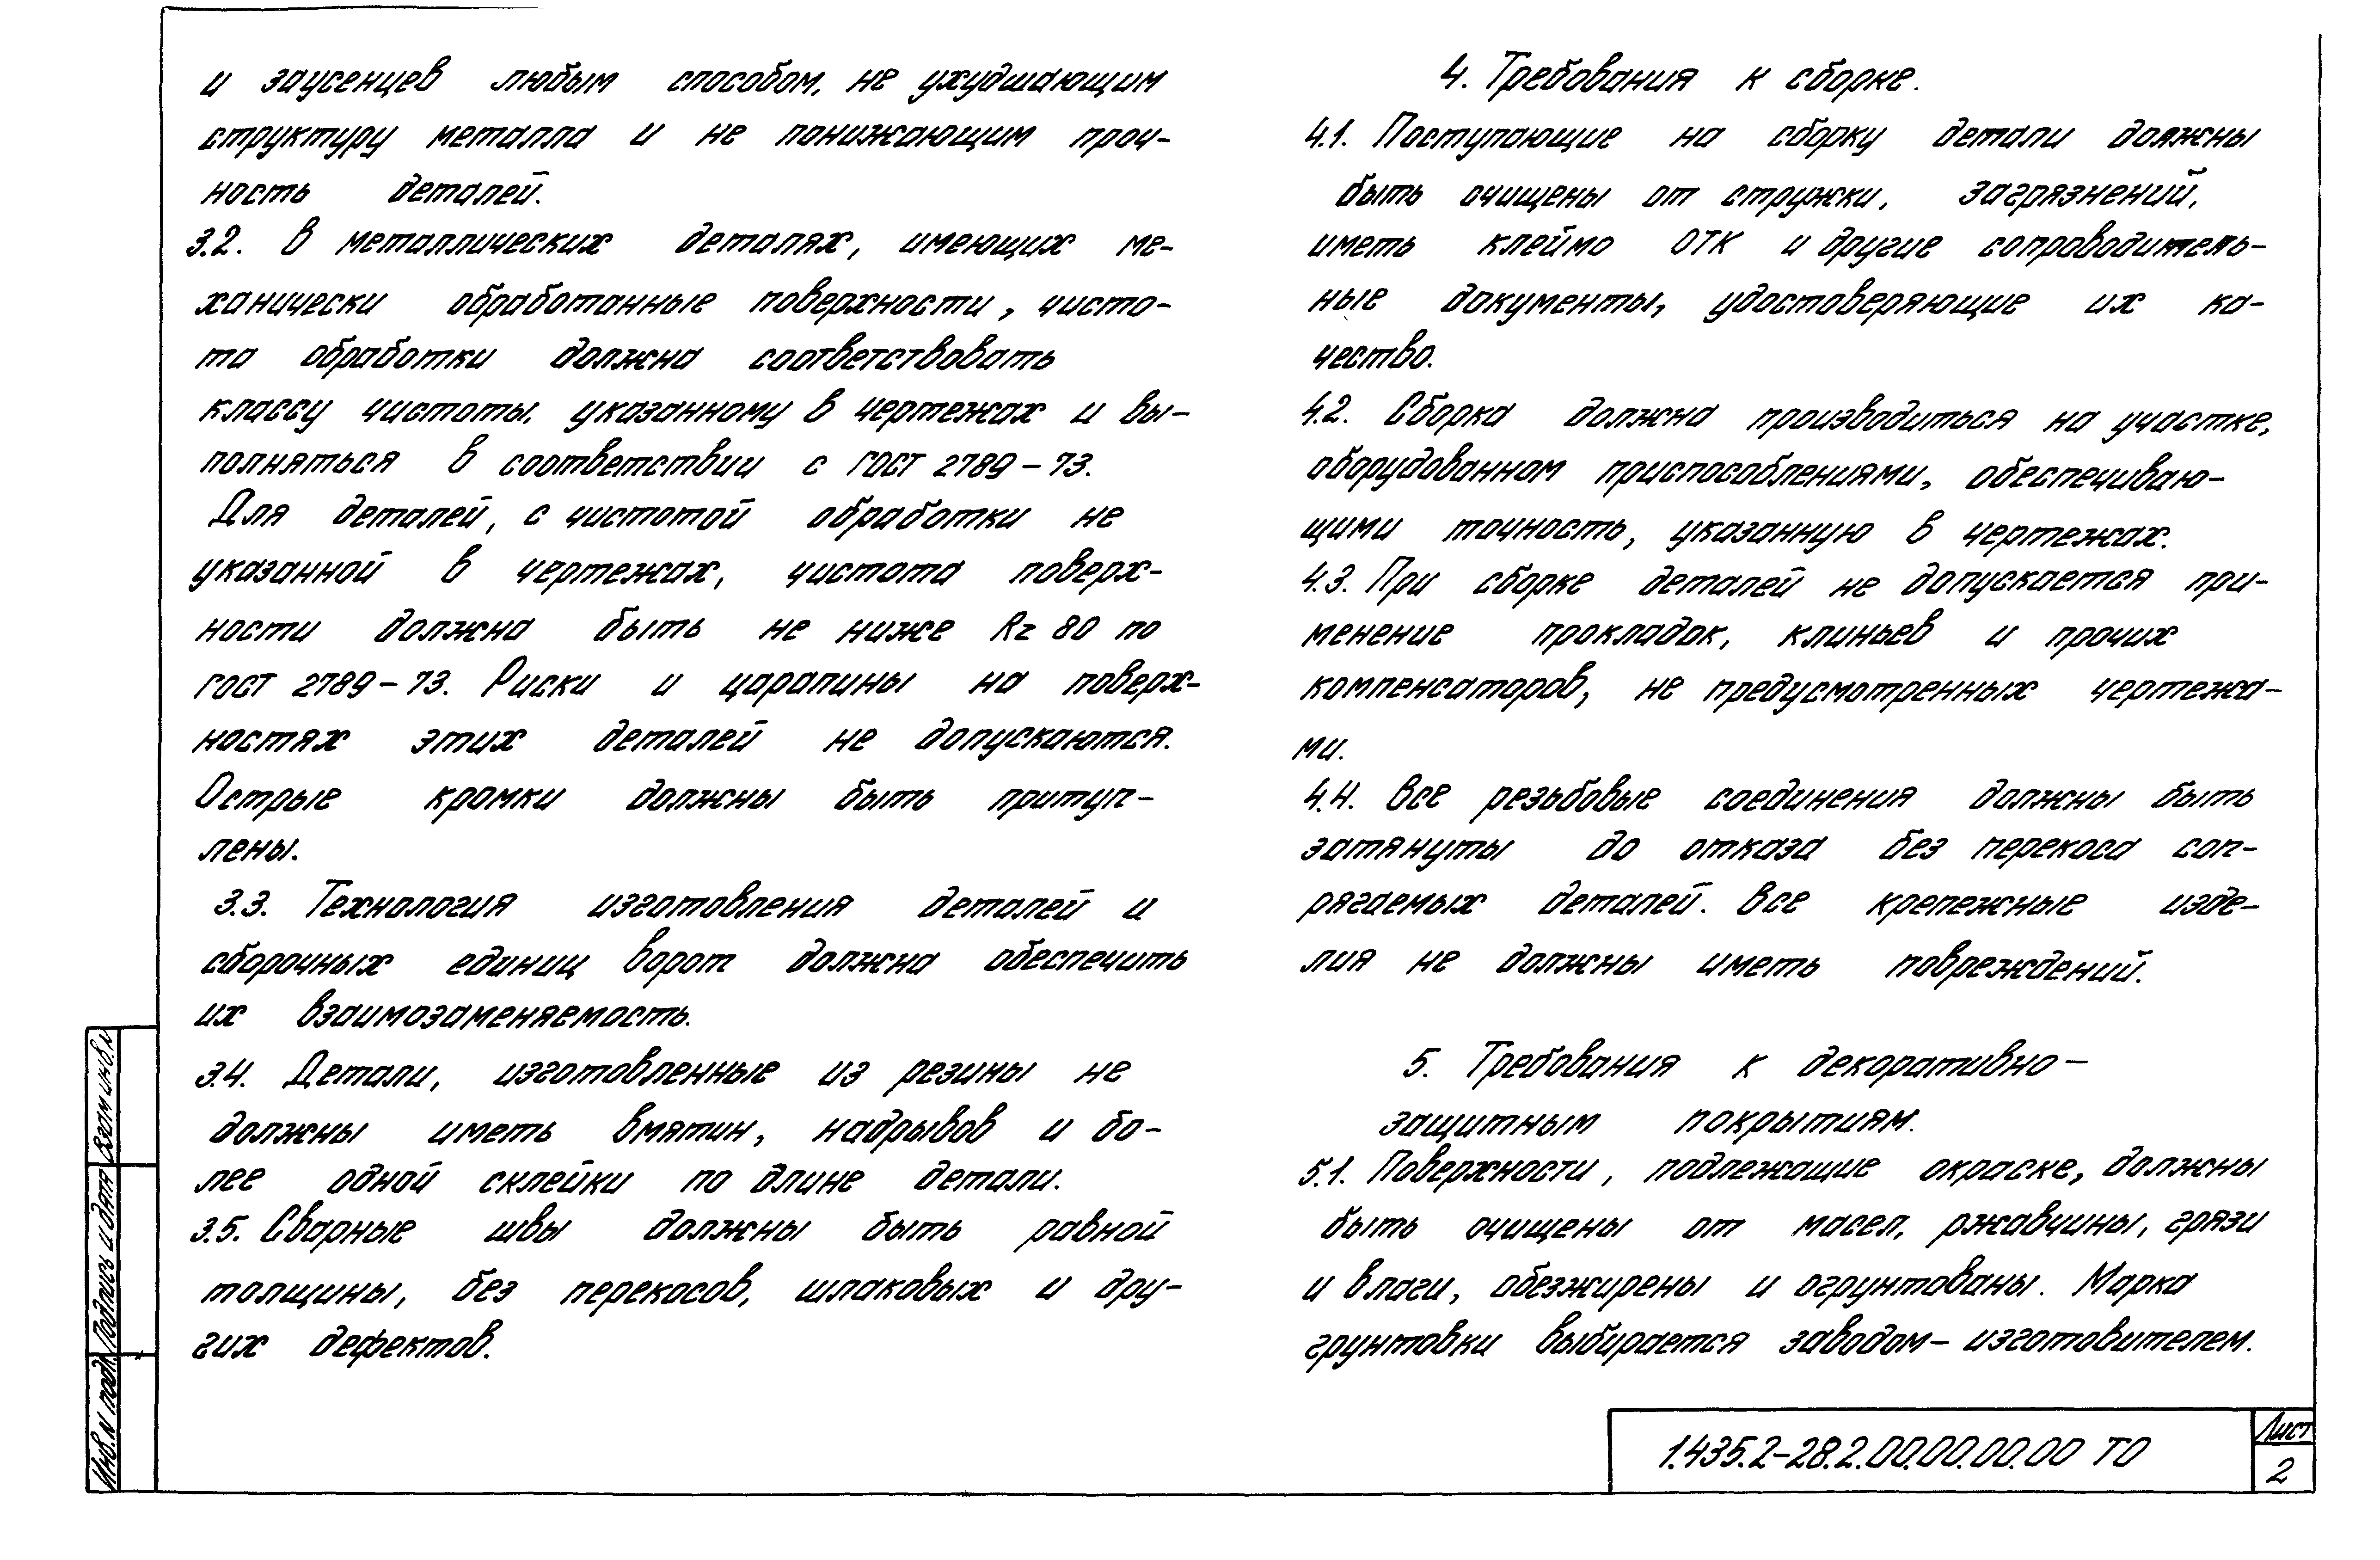 и заусенцев любым способом, не ухудшающим
структуру металла и не понижающим проч-
ность деталей.
3.2. В металлических деталях, имеющих ме-
ханически обработанные поверхности, чисто-
та обработки должна соответствовать
классу чистоты, указанному в чертежах и вы-
полняться в соответствии с ГОСТ 2789-73.
Для деталей, с чистотой обработки не
указанной в чертежах, чистота поверх-
ности должна быть не ниже Rz 80 по
ГОСТ 2789-73. Риски и царапины на поверх-
ностях этих деталей не допускаются.
Острые кромки должны быть притуп-
лены.
3.3. Технология изготовления деталей и
сборочных единиц ворот должна обеспечить
их взаимозаменяемость.
3.4. Детали, изготовленные из резины не
должны иметь вмятин, надрывов и бо-
лее одной склейки по длине детали.
3.5. Сварные швы должны быть равной
толщины, без перекосов, шлаковых и дру-
гих дефектов.
4. Требования к сборке.
4.1. Поступающие на сборку детали должны
быть очищены от стружки, загрязнений,
иметь клеймо ОТК и другие сопроводитель-
ные документы, удостоверяющие их ка-
чество.
4.2. Сборка должна производиться на участке,
оборудованном приспособлениями, обеспечиваю-
щими точность, указанную в чертежах.
4.3. При сборке деталей не допускается при-
менение прокладок, клиньев и прочих
компенсаторов, не предусмотренных чертежа-
ми.
4.4. Все резьбовые соединения должны быть
затянуты до отказа без перекоса соп-
рягаемых деталей. Все крепежные изде-
лия не должны иметь повреждений.
5. Требования к декоративно-
защитным покрытиям.
5.1. Поверхности, подлежащие окраске, должны
быть очищены от масел, ржавчины, грязи
и влаги, обезжирены и огрунтованы. Марка
грунтовки выбирается заводом-изготовителем.
Инв.N подл. Подпись и дата Взам инв.N
1.435.2-28.2.00.00.00.00 ТО
Лист
2